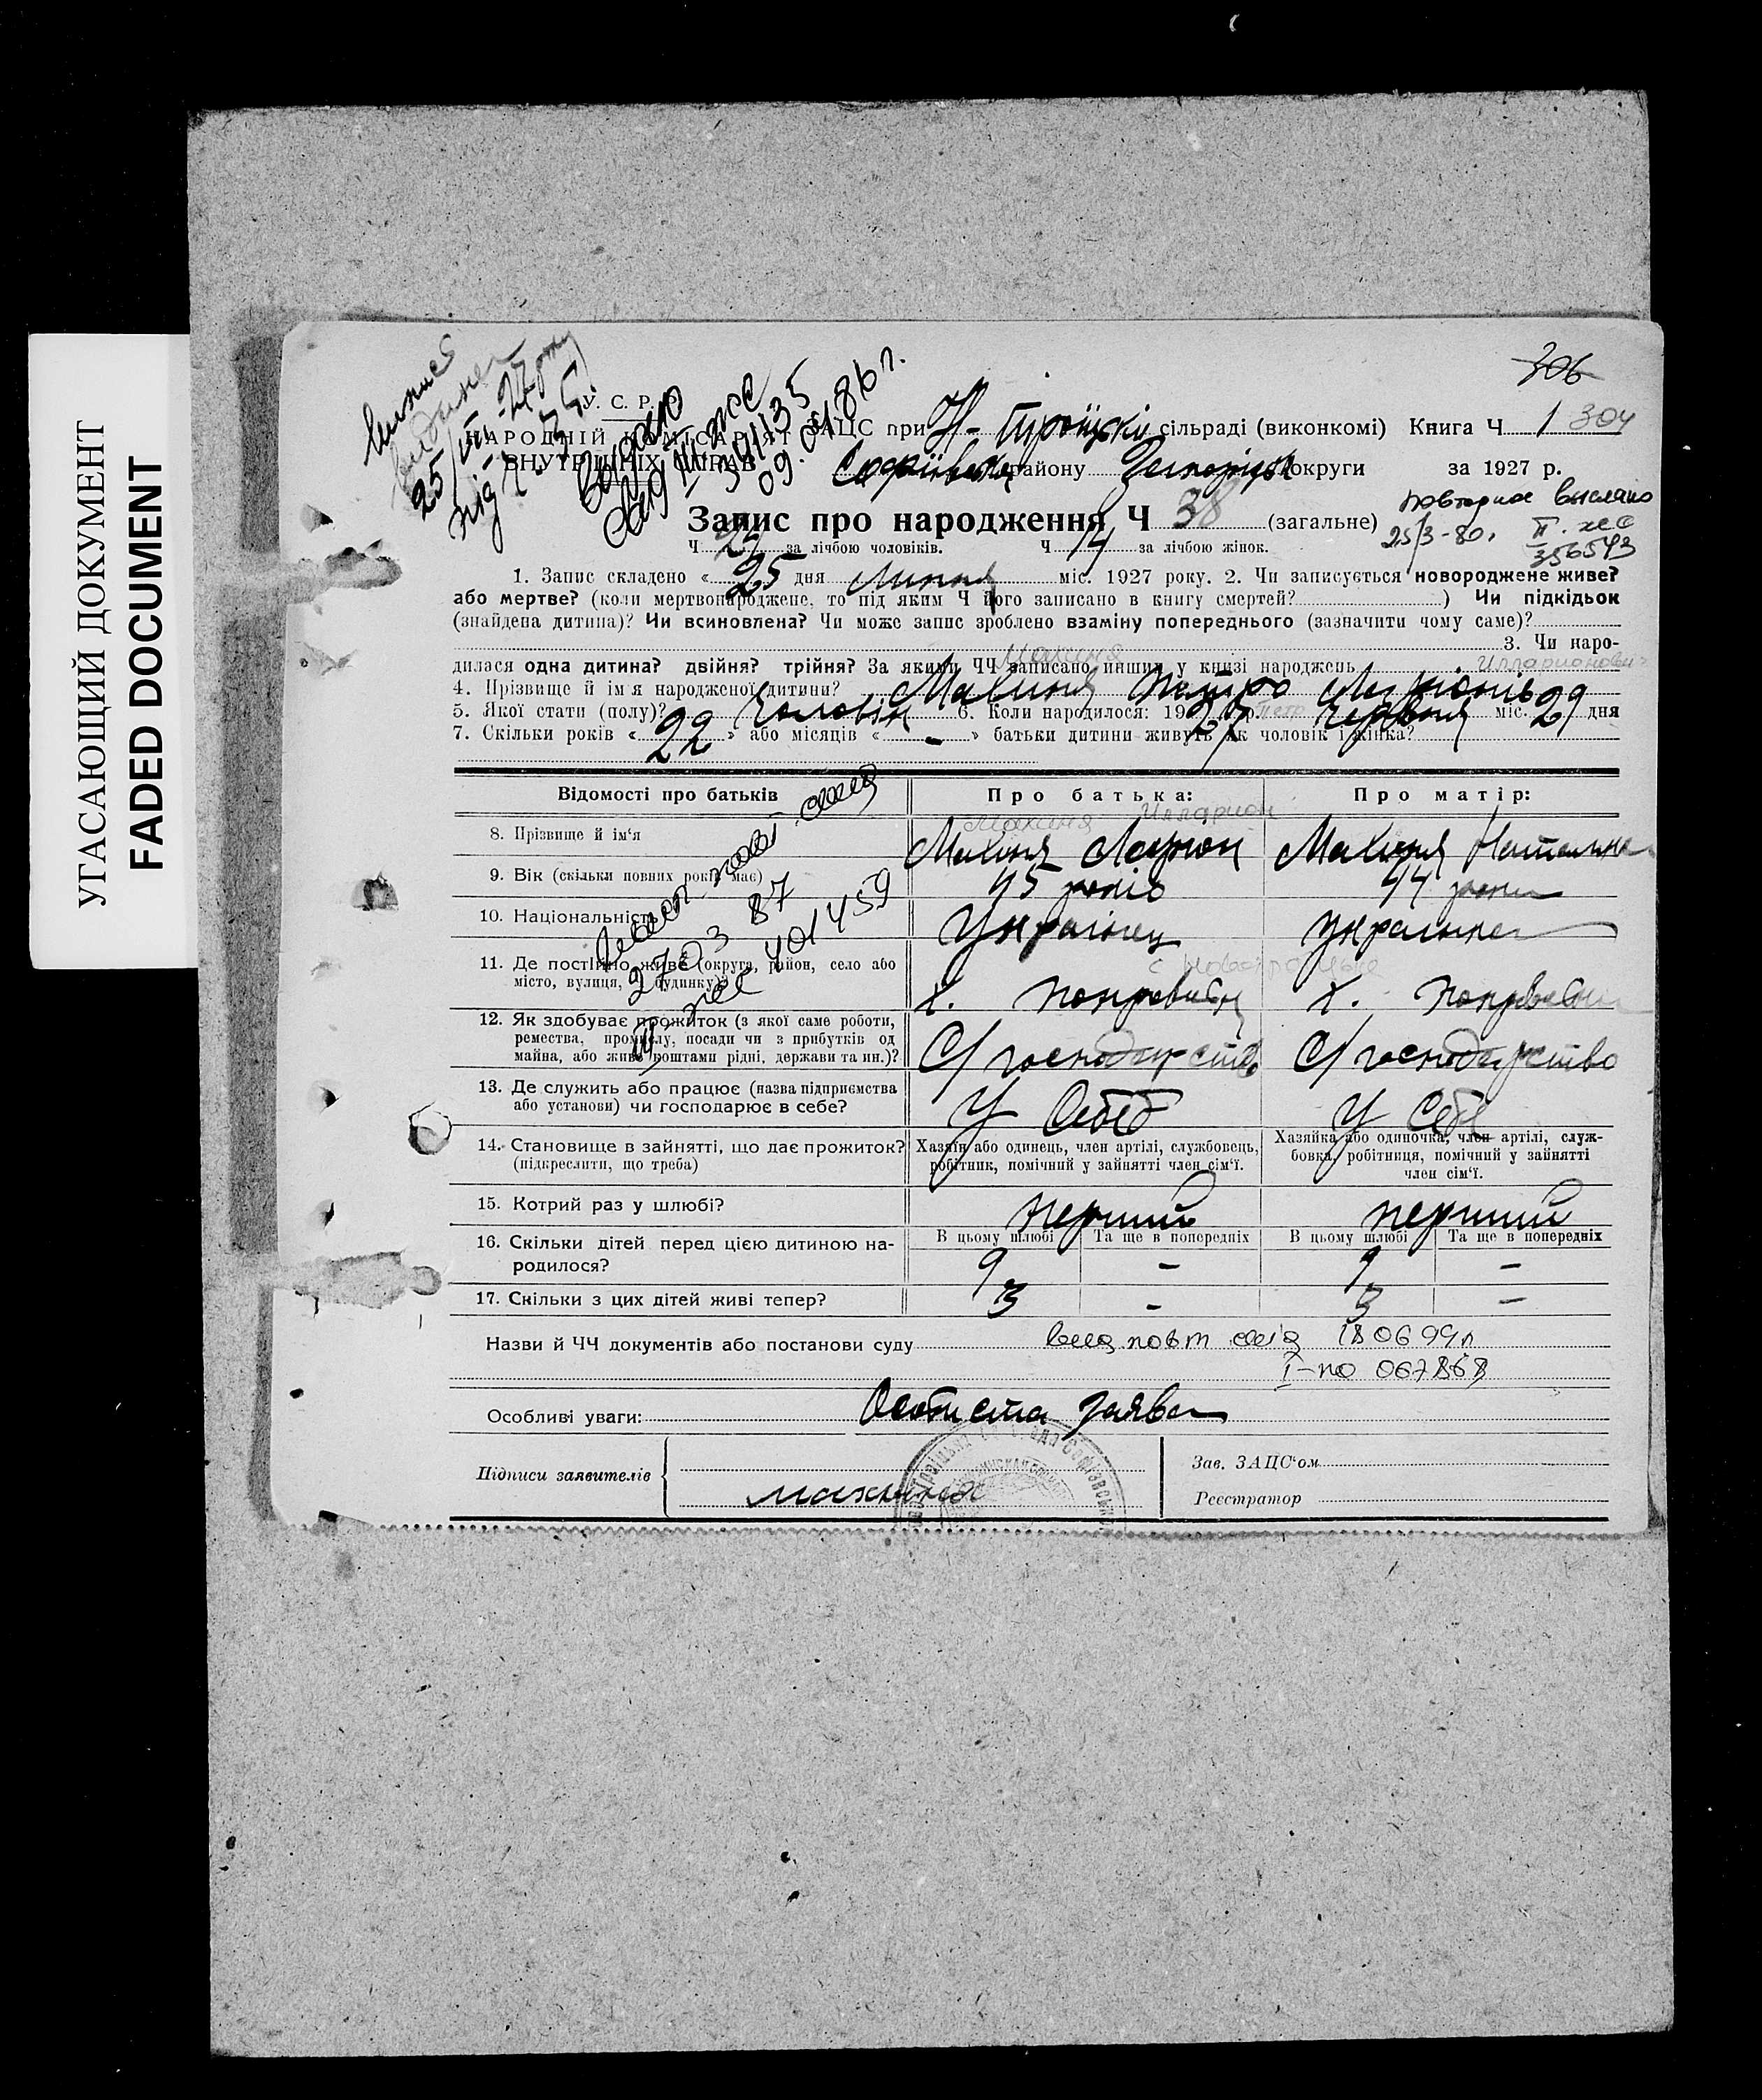 УГАСАЮЩИЙ ДОКУМЕНТ
FADED DOCUMENT
306
У. С. Р. Р.
НАРОДНІЙ КОМІСАРІЯТ
ВНУТРІШНІХ СПРАВ
25/VII
Видано
391135
09.01.86 г.
ЗАЦС при Н-Троїцькій сільраді (виконкомі) Книга Ч 1 304
Софіївськ району Запоріжськ округи за 1927 р.
повторное выслано
25/3-80. II. жс
356543
Запис про народження Ч 38 (загальне)
Ч 24 за лічбою чоловіків. Ч 14 за лічбою жінок.
1. Запис складено « 25 дня липня міс. 1927 року. 2. Чи записується новороджене живе?
або мертве? (коли мертвонароджене, то під яким Ч його записано в книгу смертей? ) Чи підкідьок
(знайдена дитина)? Чи всиновлена? Чи може запис зроблено взаміну попереднього (зазначити чому саме)?
3. Чи наро-
дилася одна дитина? двійня? трійня? За якими ЧЧ записано инших у книзі народжень
Махиня Илларионович
4. Прізвище й ім'я народженої дитини? Махиня Петро
5. Якої стати (полу)? Чоловік 6. Коли народилося: 1927 р. Петр червня міс. 29 дня
7. Скільки років « 22 » або місяців « - » батьки дитини живуть як чоловік і жінка?
Відомості про батьків Про батька: Про матір:
Махиня Илларион
8. Прізвище й ім'я Махиня Ларион Махиня Наталка
9. Вік (скільки повних років має) 45 років 44 роки
10. Національність Українец Українка
с Новотроицьке
11. Де постійно живе (округа, район, село або
місто, вулиця, Ч будинку)? х. х.
27 03 87
401459
12. Як здобуває прожиток (з якої саме роботи,
ремества, промислу, посади чи з прибутків од
майна, або живе коштами рідні, держави та ин.)? С/господарство С/господарство
13. Де служить або працює (назва підприємства
або установи) чи господарює в себе? У Себе У Себе
14. Становище в зайнятті, що дає прожиток?
(підкреслити, що треба)
Хазяїн або одинець, член артілі, службовець,
робітник, помічний у зайнятті член сім'ї.
Хазяйка або одиночка, член артілі, служ-
бовка, робітниця, помічний у зайнятті
член сім'ї.
15. Котрий раз у шлюбі? перший перший
В цьому шлюбі Та ще в попередніх В цьому шлюбі Та ще в попередніх
16. Скільки дітей перед цією дитиною на-
родилося? 9 - 9 -
17. Скільки з цих дітей живі тепер? 3 - 3 -
Назви й ЧЧ документів або постанови суду повт 180699г
I-по 067868
Особливі уваги: Особиста заява
Підписи заявителів
Махиня
Зав. ЗАЦС'ом
Реєстратор